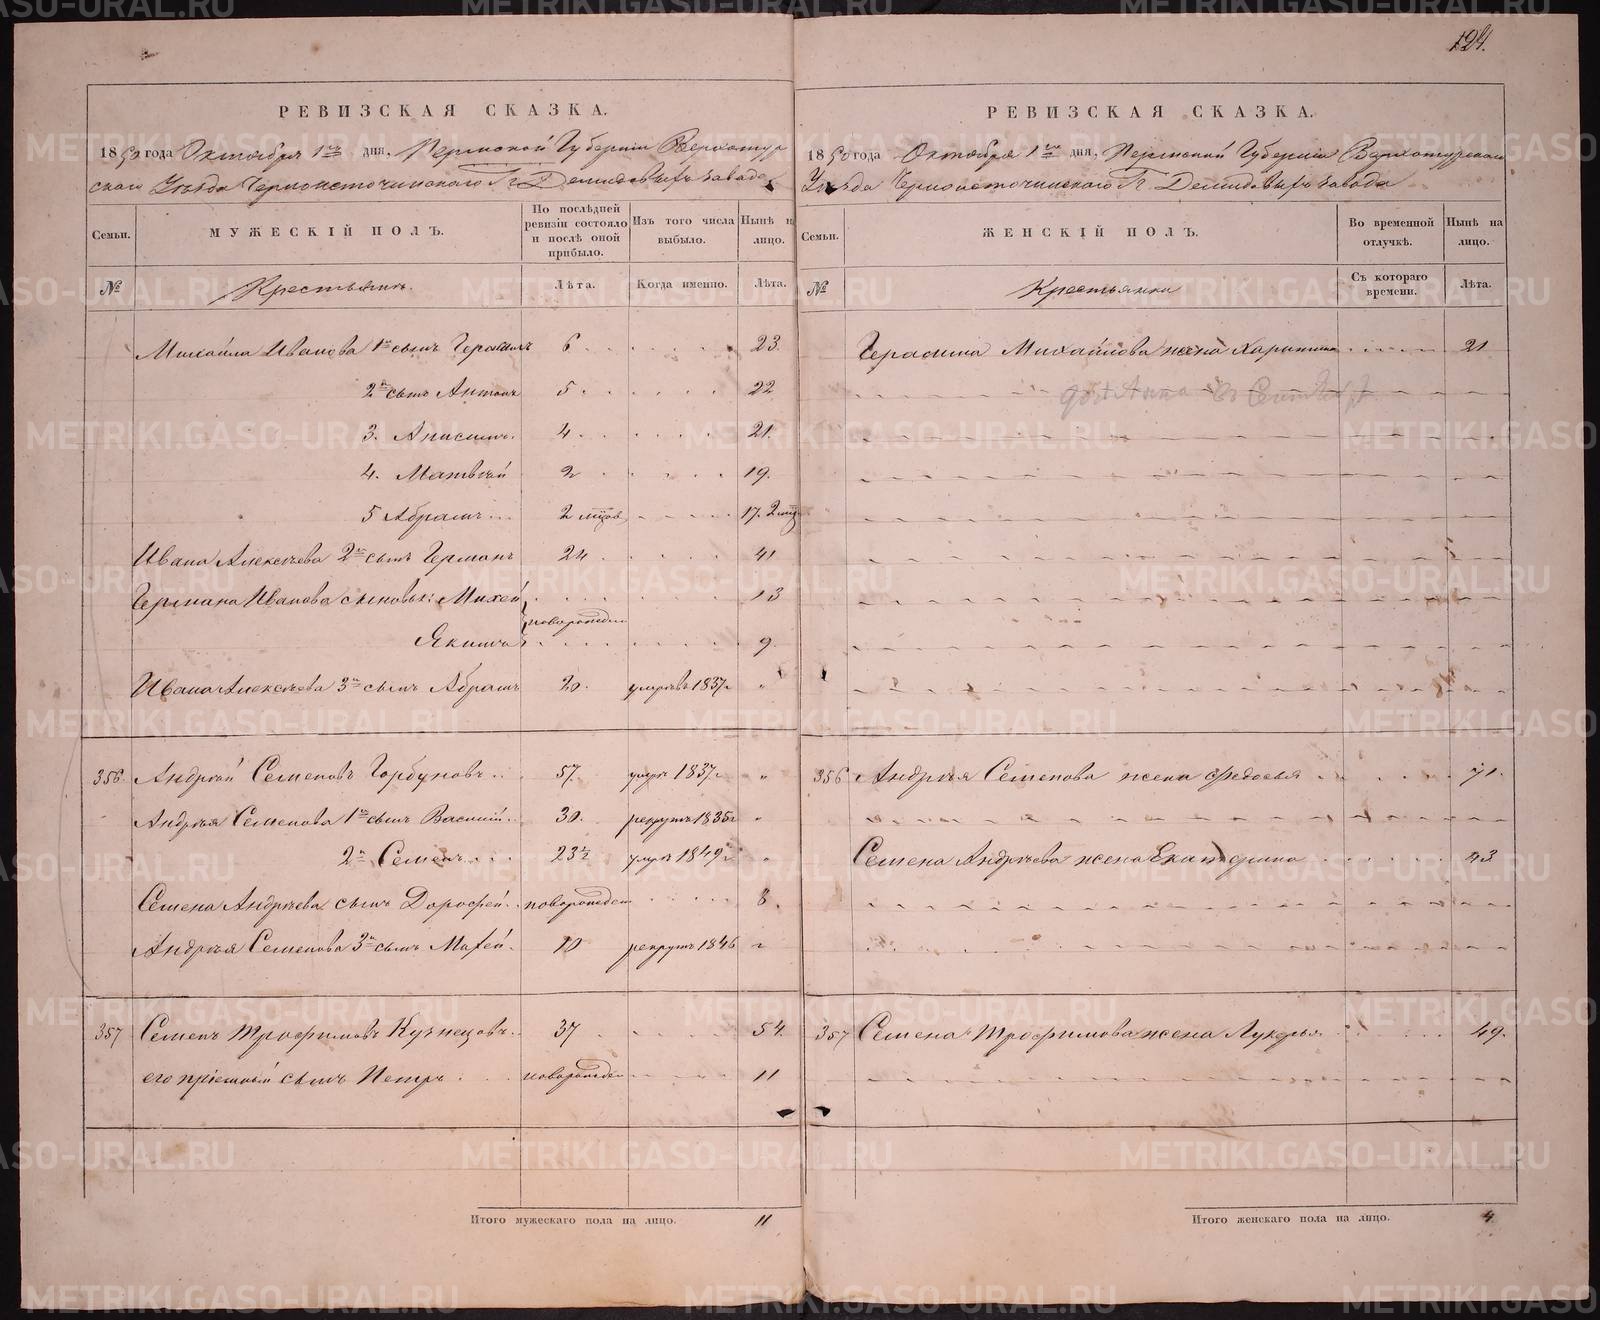 124.
РЕВИЗСКАЯ СКАЗКА.
1850 года Октября 1го дня, Пермской Губернiи Верхотур
скаго Уѣзда Черноисточинскаго Гг. Демидовыхъ завода
Семьи.
МУЖЕСКIЙ ПОЛЪ.
По послѣдней ревизiи состояло и послѣ оной прибыло.
Изъ того числа выбыло.
Нынѣ на лицо.
№
Крестьянъ.
Лѣта.
Когда именно.
Лѣта.
Михайла Иванова 1й сынъ Герасимъ 6 23.
2й сынъ Антонъ 5 22
3. Анисимъ. 4 21.
4. Матвѣй 2 19.
5 Абрамъ 2 мцов 17. 2 мц
Ивана Алексѣева 2й сынъ Германъ 24 41
Германа Иванова сыновья: Михей новорожден 13
Якимъ 9
Ивана Алексѣева 3й сынъ Абрамъ 20. умръ въ 1837г "
356. Андрѣй Семеновъ Горбуновъ 57 умръ 1837г "
Андрѣя Семенова 1й сынъ Василiй. 30. рекрутъ 1835г "
2й Семенъ 23½ умръ 1849г "
Семена Андрѣева сынъ Дорофей новорожден 8.
Андрѣя Семенова 3й сынъ Мокей 10 рекрутъ 1846 г
357 Семенъ Трофимовъ Кузнецовъ 37 54.
его прiемный сынъ Петръ новорожден 11
Итого мужескаго пола на лицо. 11
РЕВИЗСКАЯ СКАЗКА.
1850 года Октября 1го дня, Пермской Губернiи Верхотурскаго
Уѣзда Черноисточинскаго Гг. Демидовыхъ завода
Семьи.
ЖЕНСКIЙ ПОЛЪ.
Во временной отлучкѣ.
Нынѣ на лицо.
№
Крестьянки
Съ котораго времени.
Лѣта.
Герасима Михайлова жена Харитина 21
доч Анна
356 Андрѣя Семенова жена Федосья 71.
Семена Андрѣева жена Екатерина 43
357 Семена Трофимова жена Лукерья 49.
Итого женскаго пола на лицо. 4
METRIKI.GASO-URAL.RU